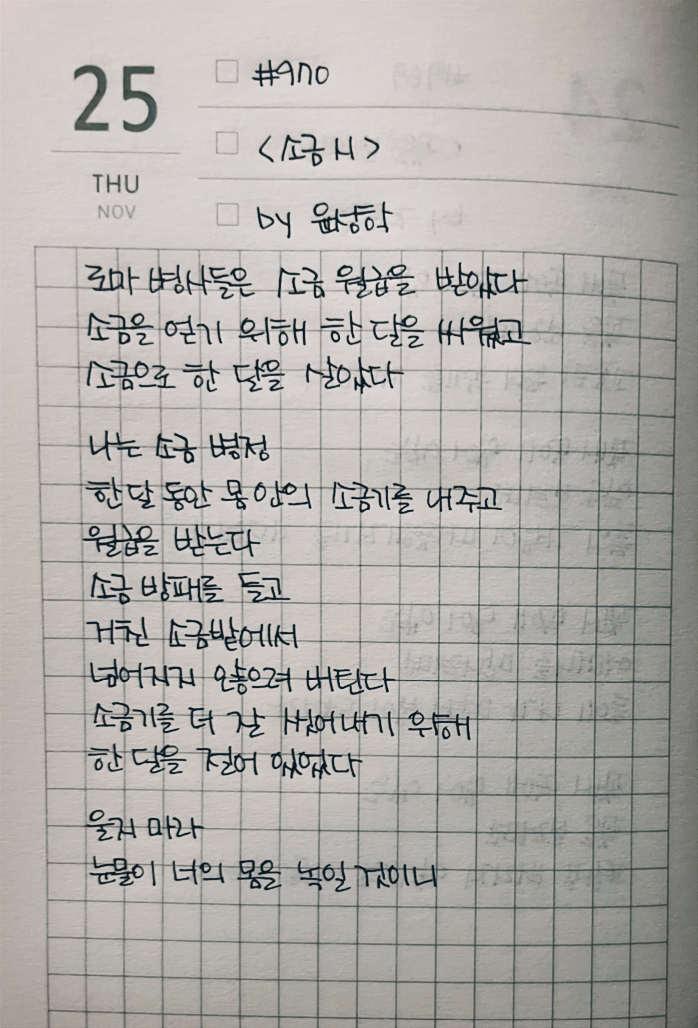 25
THU
NOV
#970
<소금 시>
by 윤성학
로마 병사들은 소금 월급을 받았다
소금을 얻기 위해 한 달을 싸웠고
소금으로 한 달을 살았다
나는 소금 병정
한 달 동안 몸 안의 소금기를 내주고
월급을 받는다
소금 방패를 들고
거친 소금밭에서
넘어지지 않으려 버틴다
소금기를 더 잘 씻어내기 위해
한 달을 절어 있었다
울지 마라
눈물이 너의 몸을 녹일 것이니